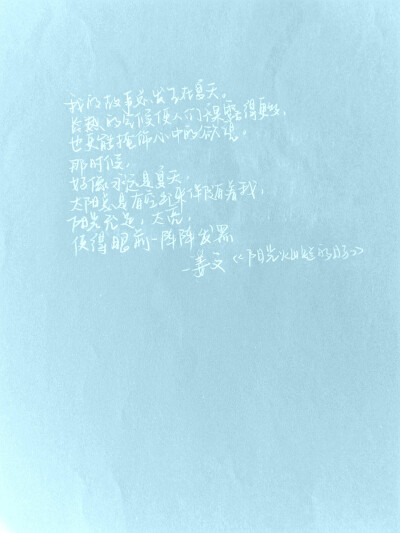 我的故事总发生在夏天。
炎热的气候使人们裸露得更多,
也更难掩饰心中的欲望。
那时候,
好像永远是夏天,
太阳总是有空出来伴随着我,
阳光充足,太亮,
使得眼前一阵阵发黑
—姜文《阳光灿烂的日子》